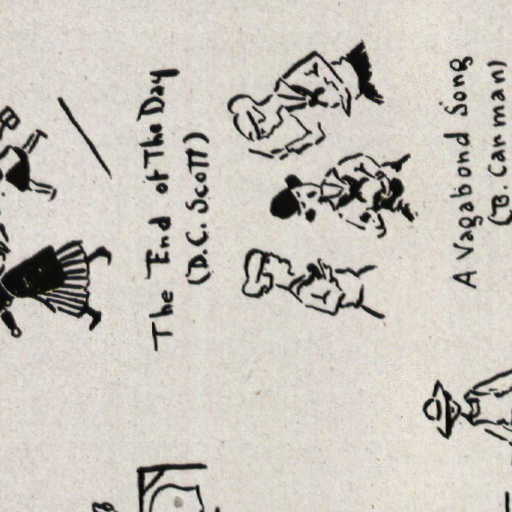 The End of The Day
(D.C. Scott)
A Vagabond Song
(B. Carman)